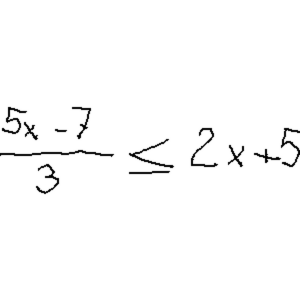 (5x-7)/3 ≤ 2x+5